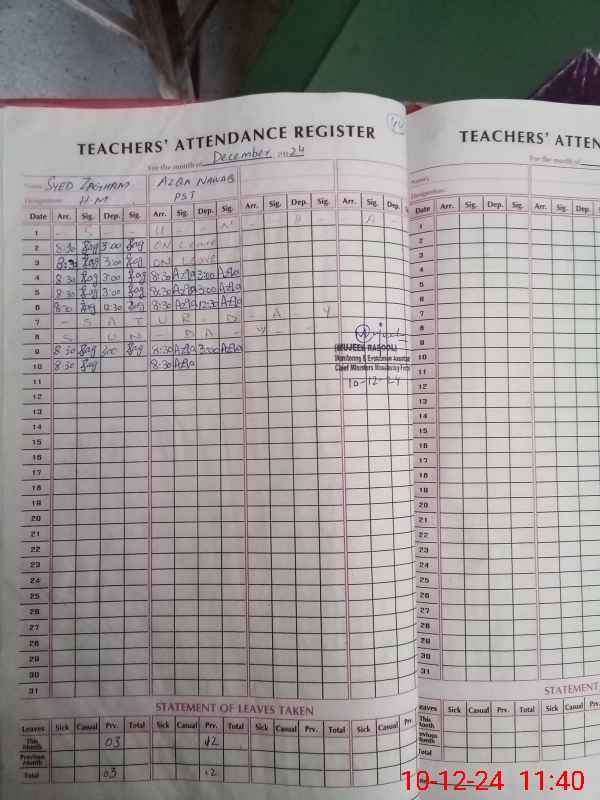 TEACHERS' ATTENDANCE REGISTER
For the month of December 2024
Name SYED ZAGHAM AZBA NAWAB
Designation H.M PST
Date Arr. Sig. Dep. Sig. Arr. Sig. Dep. Sig. Arr. Sig. Dep. Sig. Arr. Sig. Dep.
1 - S - U - N - D - A -
2 8:30 Zag 3:00 Zag ON Leave
3 8:30 Zag 3:00 Zag ON Leave
4 8:30 Zag 3:00 Zag 8:30 Azba 3:00 Azba
5 8:30 Zag 3:00 Zag 8:30 Azba 3:00 Azba
6 8:30 Zag 12:30 Zag 8:30 Azba 12:30 Azba
7 - S A T U R - D - A - Y
8 S - U N - DA - Y - -
9 8:30 Zag 3:00 Zag 8:30 Azba 3:00 Azba
10 8:30 Zag 8:30 Azba
(MUJEEB RASOOL)
Monitoring & Evaluation Assistant
Chief Minister's Monitoring Force
10-12-24
11
12
13
14
15
16
17
18
19
20
21
22
23
24
25
26
27
28
29
30
31
STATEMENT OF LEAVES TAKEN
Leaves Sick Casual Prv. Total Sick Casual Prv. Total Sick Casual Prv. Total Sick Casual Prv.
This Month 03 02
Previous Month
Total 03 02
TEACHERS' ATTEN
For the month of
Name
Designation
Date Arr. Sig. Dep. Sig. Arr. Sig. Dep.
1
2
3
4
5
6
7
8
9
10
11
12
13
14
15
16
17
18
19
20
21
22
23
24
25
26
27
28
29
30
31
STATEMENT
Leaves Sick Casual Prv. Total Sick Casual Prv.
This Month
Previous Month
Total
10-12-24 11:40